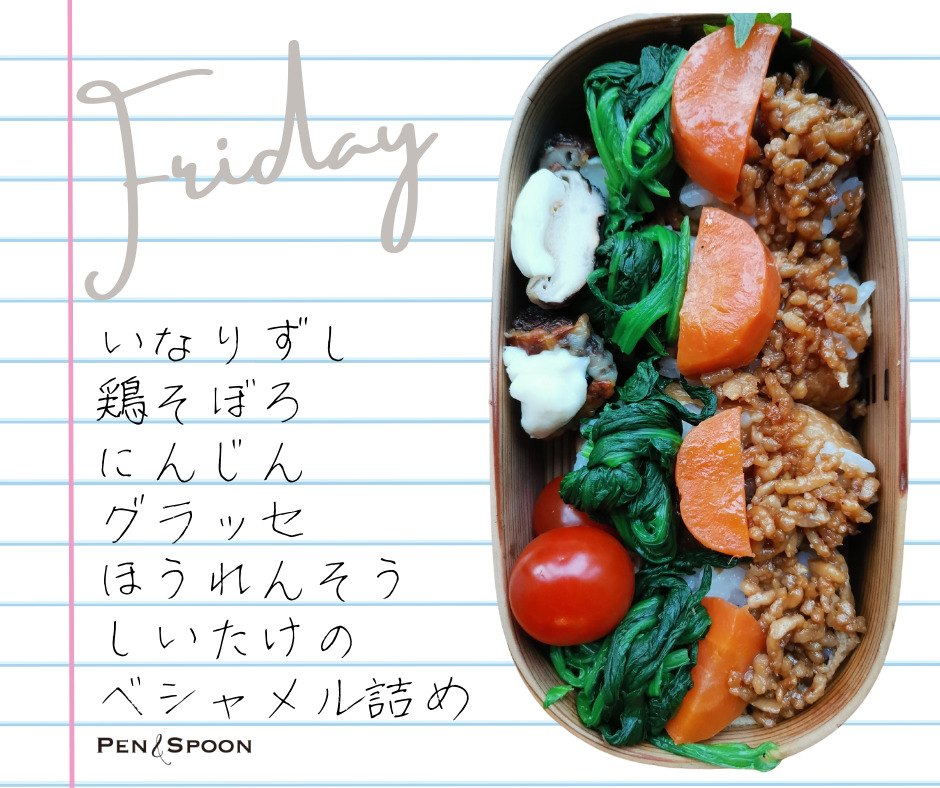 Friday
いなりずし
鶏そぼろ
にんじん
グラッセ
ほうれんそう
しいたけの
ベシャメル詰め
PEN&SPOON